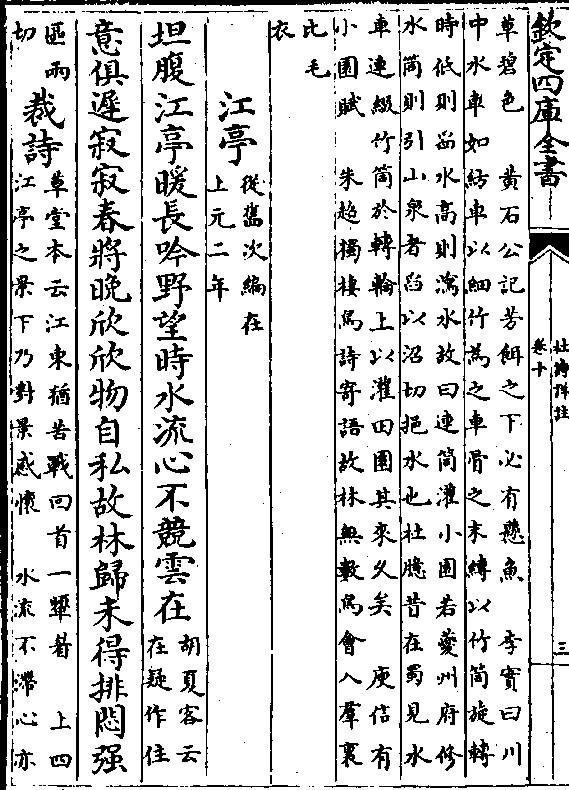 欽定四庫全書
杜詩詳註
卷十
三
草碧色　黄石公記芳餌之下必有懸魚　李實曰川
中水車如紡車以細竹為之車骨之末縛以竹筒旋轉
時低則舀水高則瀉水故曰連筒灌小園若䕫州府修
水筒則引山泉者舀以沼切挹水也杜臆昔在蜀見水
車連綴竹筒於轉輪上以灌田園其來久矣　庾信有
小園賦　朱超獨棲鳥詩寄語故林無數鳥會入羣裏
比毛
衣
江亭
從舊次編在
上元二年
坦腹江亭暖長吟野望時水流心不競雲在
胡夏客云
在疑作住
意俱遲寂寂春將晚欣欣物自私故林歸未得排悶强
裁詩
草堂本云江東猶苦戰回首一顰眉　上四
江亭之景下乃對景感懷　水流不滯心亦
區兩
切